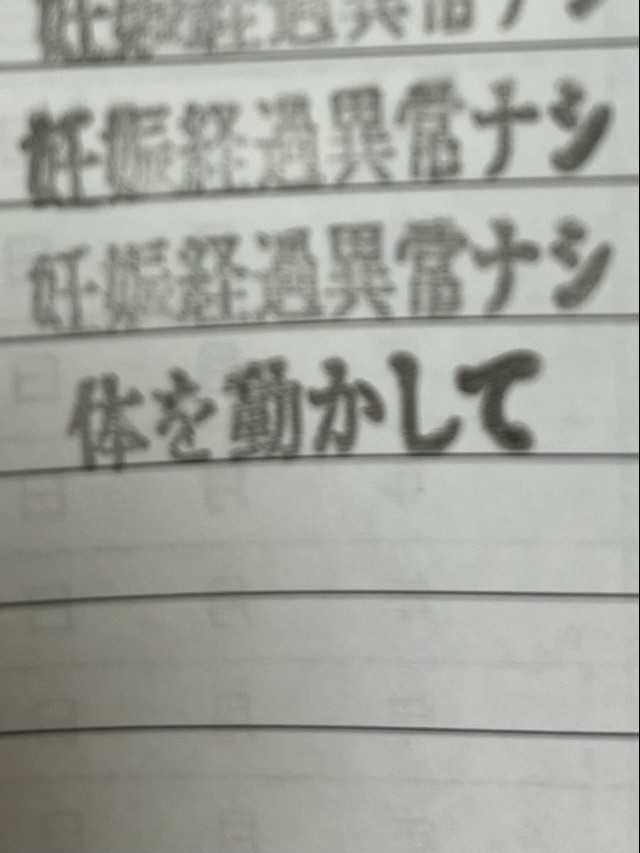 妊娠経過異常ナシ
妊娠経過異常ナシ
妊娠経過異常ナシ
体を動かして